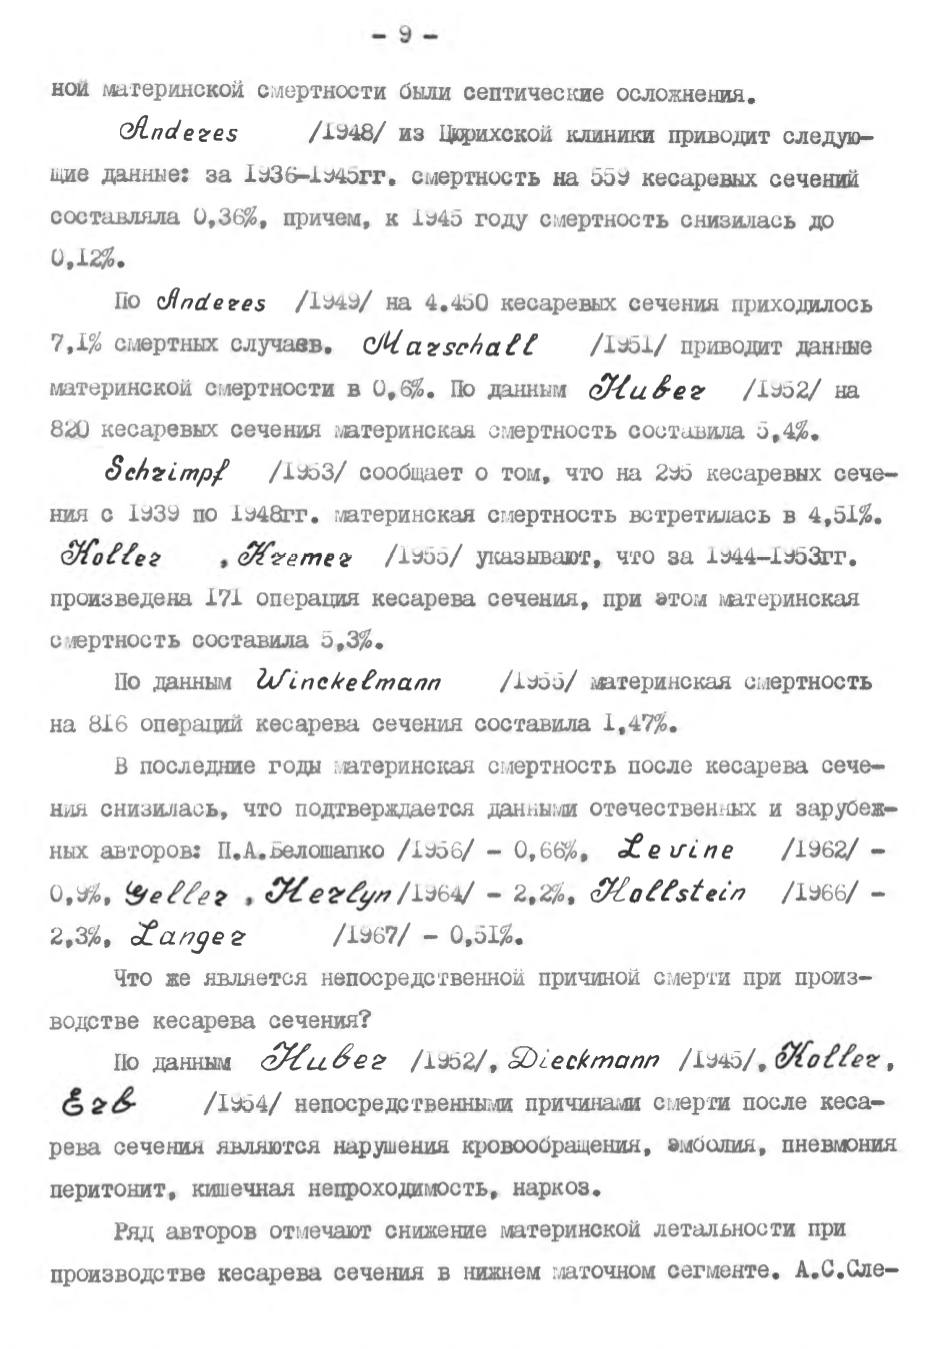 - 9 -
ной материнской смертности были септические осложнения.
Anderes /1948/ из Цюрихской клиники приводит следую-
щие данные: за 1936-1945гг. смертность на 559 кесаревых сечений
составляла 0,36%, причем, к 1945 году смертность снизилась до
0,12%.
По Anderes /1949/ на 4.450 кесаревых сечения приходилось
7,1% смертных случаев. Marschall /1951/ приводит данные
материнской смертности в 0,6%. По данным Huber /1952/ на
820 кесаревых сечения материнская смертность составила 5,4%.
Schrimpf /1953/ сообщает о том, что на 295 кесаревых сече-
ния с 1939 по 1948гг. материнская смертность встретилась в 4,51%.
Koller , Kremer /1955/ указывают, что за 1944-1953гг.
произведена 171 операция кесарева сечения, при этом материнская
смертность составила 5,3%.
По данным Winckelmann /1955/ материнская смертность
на 816 операций кесарева сечения составила 1,47%.
В последние годы материнская смертность после кесарева сече-
ния снизилась, что подтверждается данными отечественных и зарубеж-
ных авторов: П.А.Белошапко /1956/ - 0,66%, Levine /1962/ -
0,9%, Geller , Herlyn /1964/ - 2,2%, Hallstein /1966/ -
2,3%, Langer /1967/ - 0,51%.
Что же является непосредственной причиной смерти при произ-
водстве кесарева сечения?
По данным Huber /1952/, Dieckmann /1945/, Koller,
Erb /1954/ непосредственными причинами смерти после кеса-
рева сечения являются нарушения кровообращения, эмболия, пневмония
перитонит, кишечная непроходимость, наркоз.
Ряд авторов отмечают снижение материнской летальности при
производстве кесарева сечения в нижнем маточном сегменте. А.С.Сле-